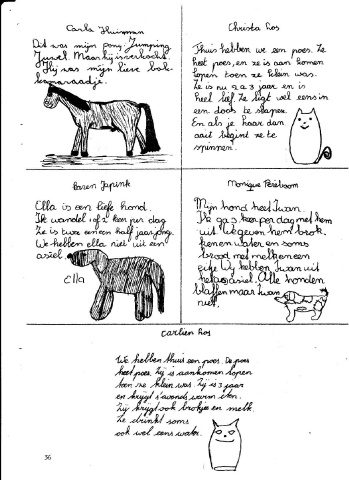 Carla Huisman
Dit was mijn pony Jumping
Juwel. Maar hij is verkocht.
Hij was mijn lieve bok-
Christa Los
Thuis hebben we een poes. Ze
heet poes, en ze is aan komen
lopen toen ze klein was.
Ze is nu 2 a 3 jaar en is
heel lief. Ze ligt wel eens in
een doos te slapen.
En als je haar dan
aait begint ze te
spinnen.
Karen Jepink
Ella is een liefe hond.
Ik wandel 1 of 2 keer per dag
Ze is twee en een half jaar jong.
We hebben ella niet uit een
asiel.
Ella
Monique Pereboom
Mijn hond heet Iwan.
Ik ga 3 keer per dag met hem
uit. we geven hem brok-
ken en water en soms
brood met melk en een
eitje. Wij hebben Iwan uit
het asiel. Alle honden
blaffen maar Iwan
niet.
Carlien Los
We hebben thuis een poes. De poes
heet poes. Zij is aan komen lopen
toen ze klein was. Zij is 3 jaar
en krijgt s'avonds warm eten.
Zij krijgt ook brokjes en melk.
Ze drinkt soms
ook wel eens water.
36